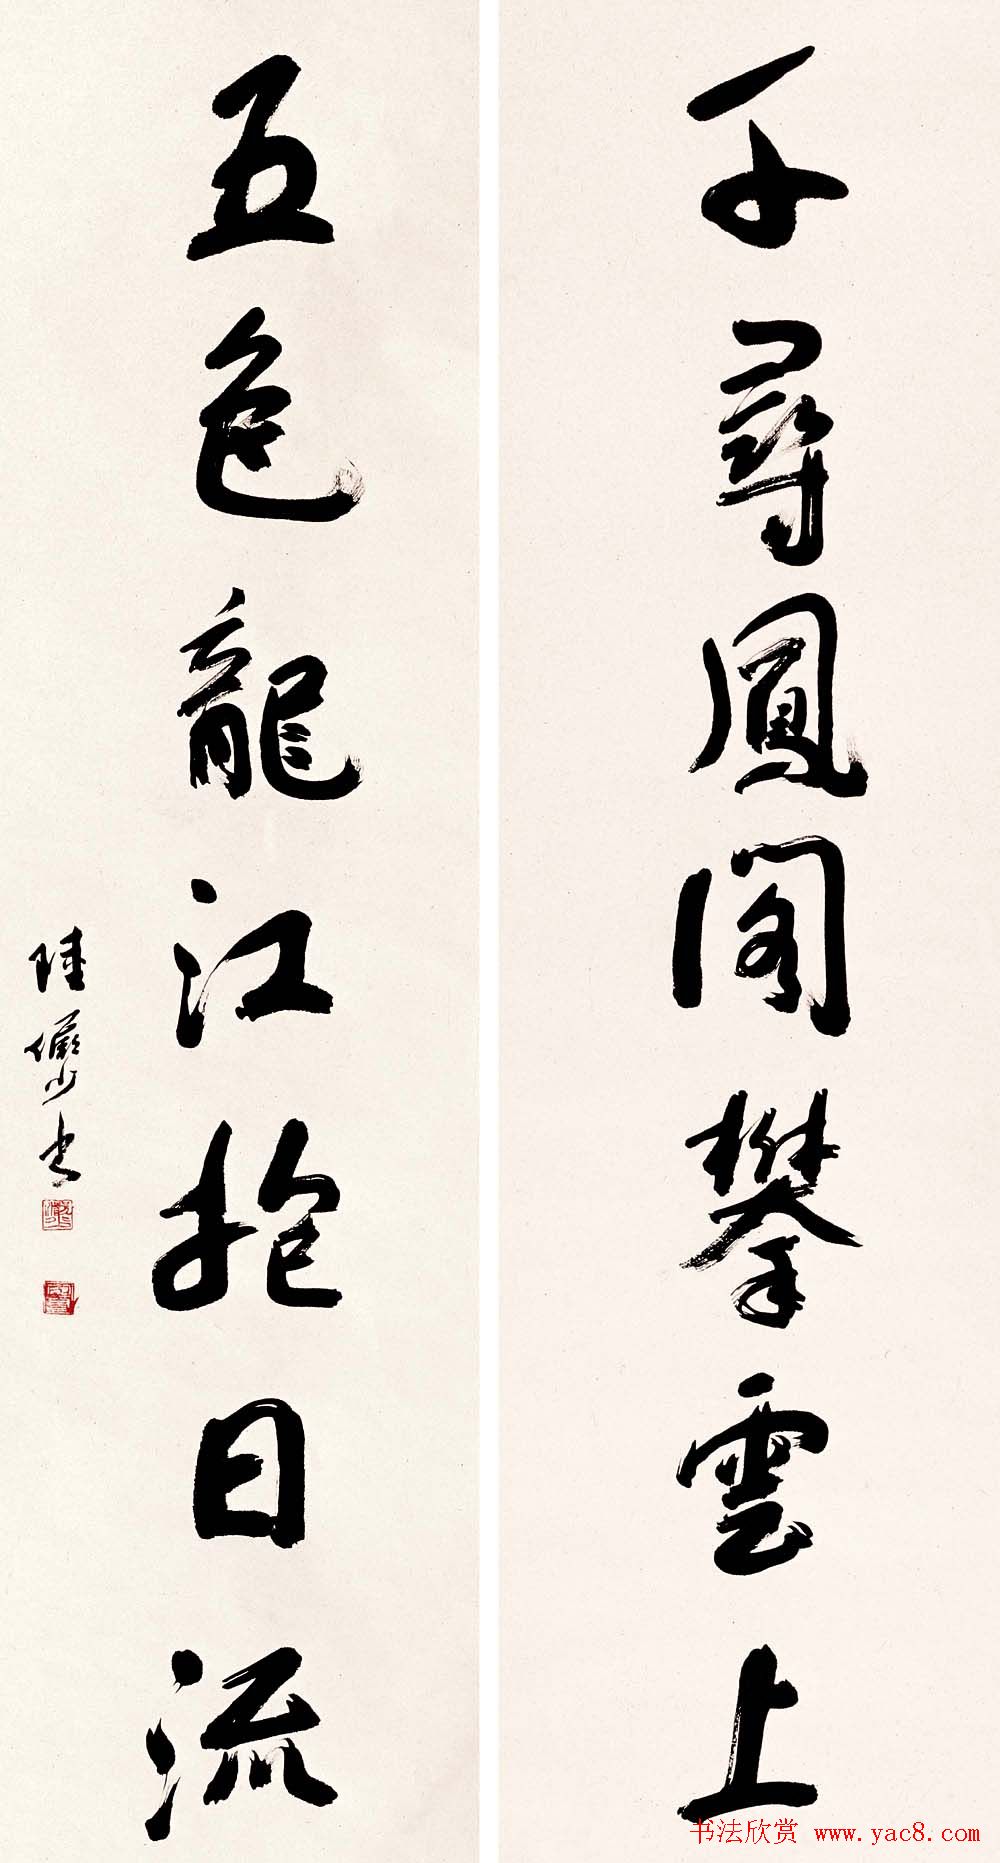 千尋鳳閣攀雲上
五色龍江抱日流
陸儼少書
书法欣赏 www.yac8.com